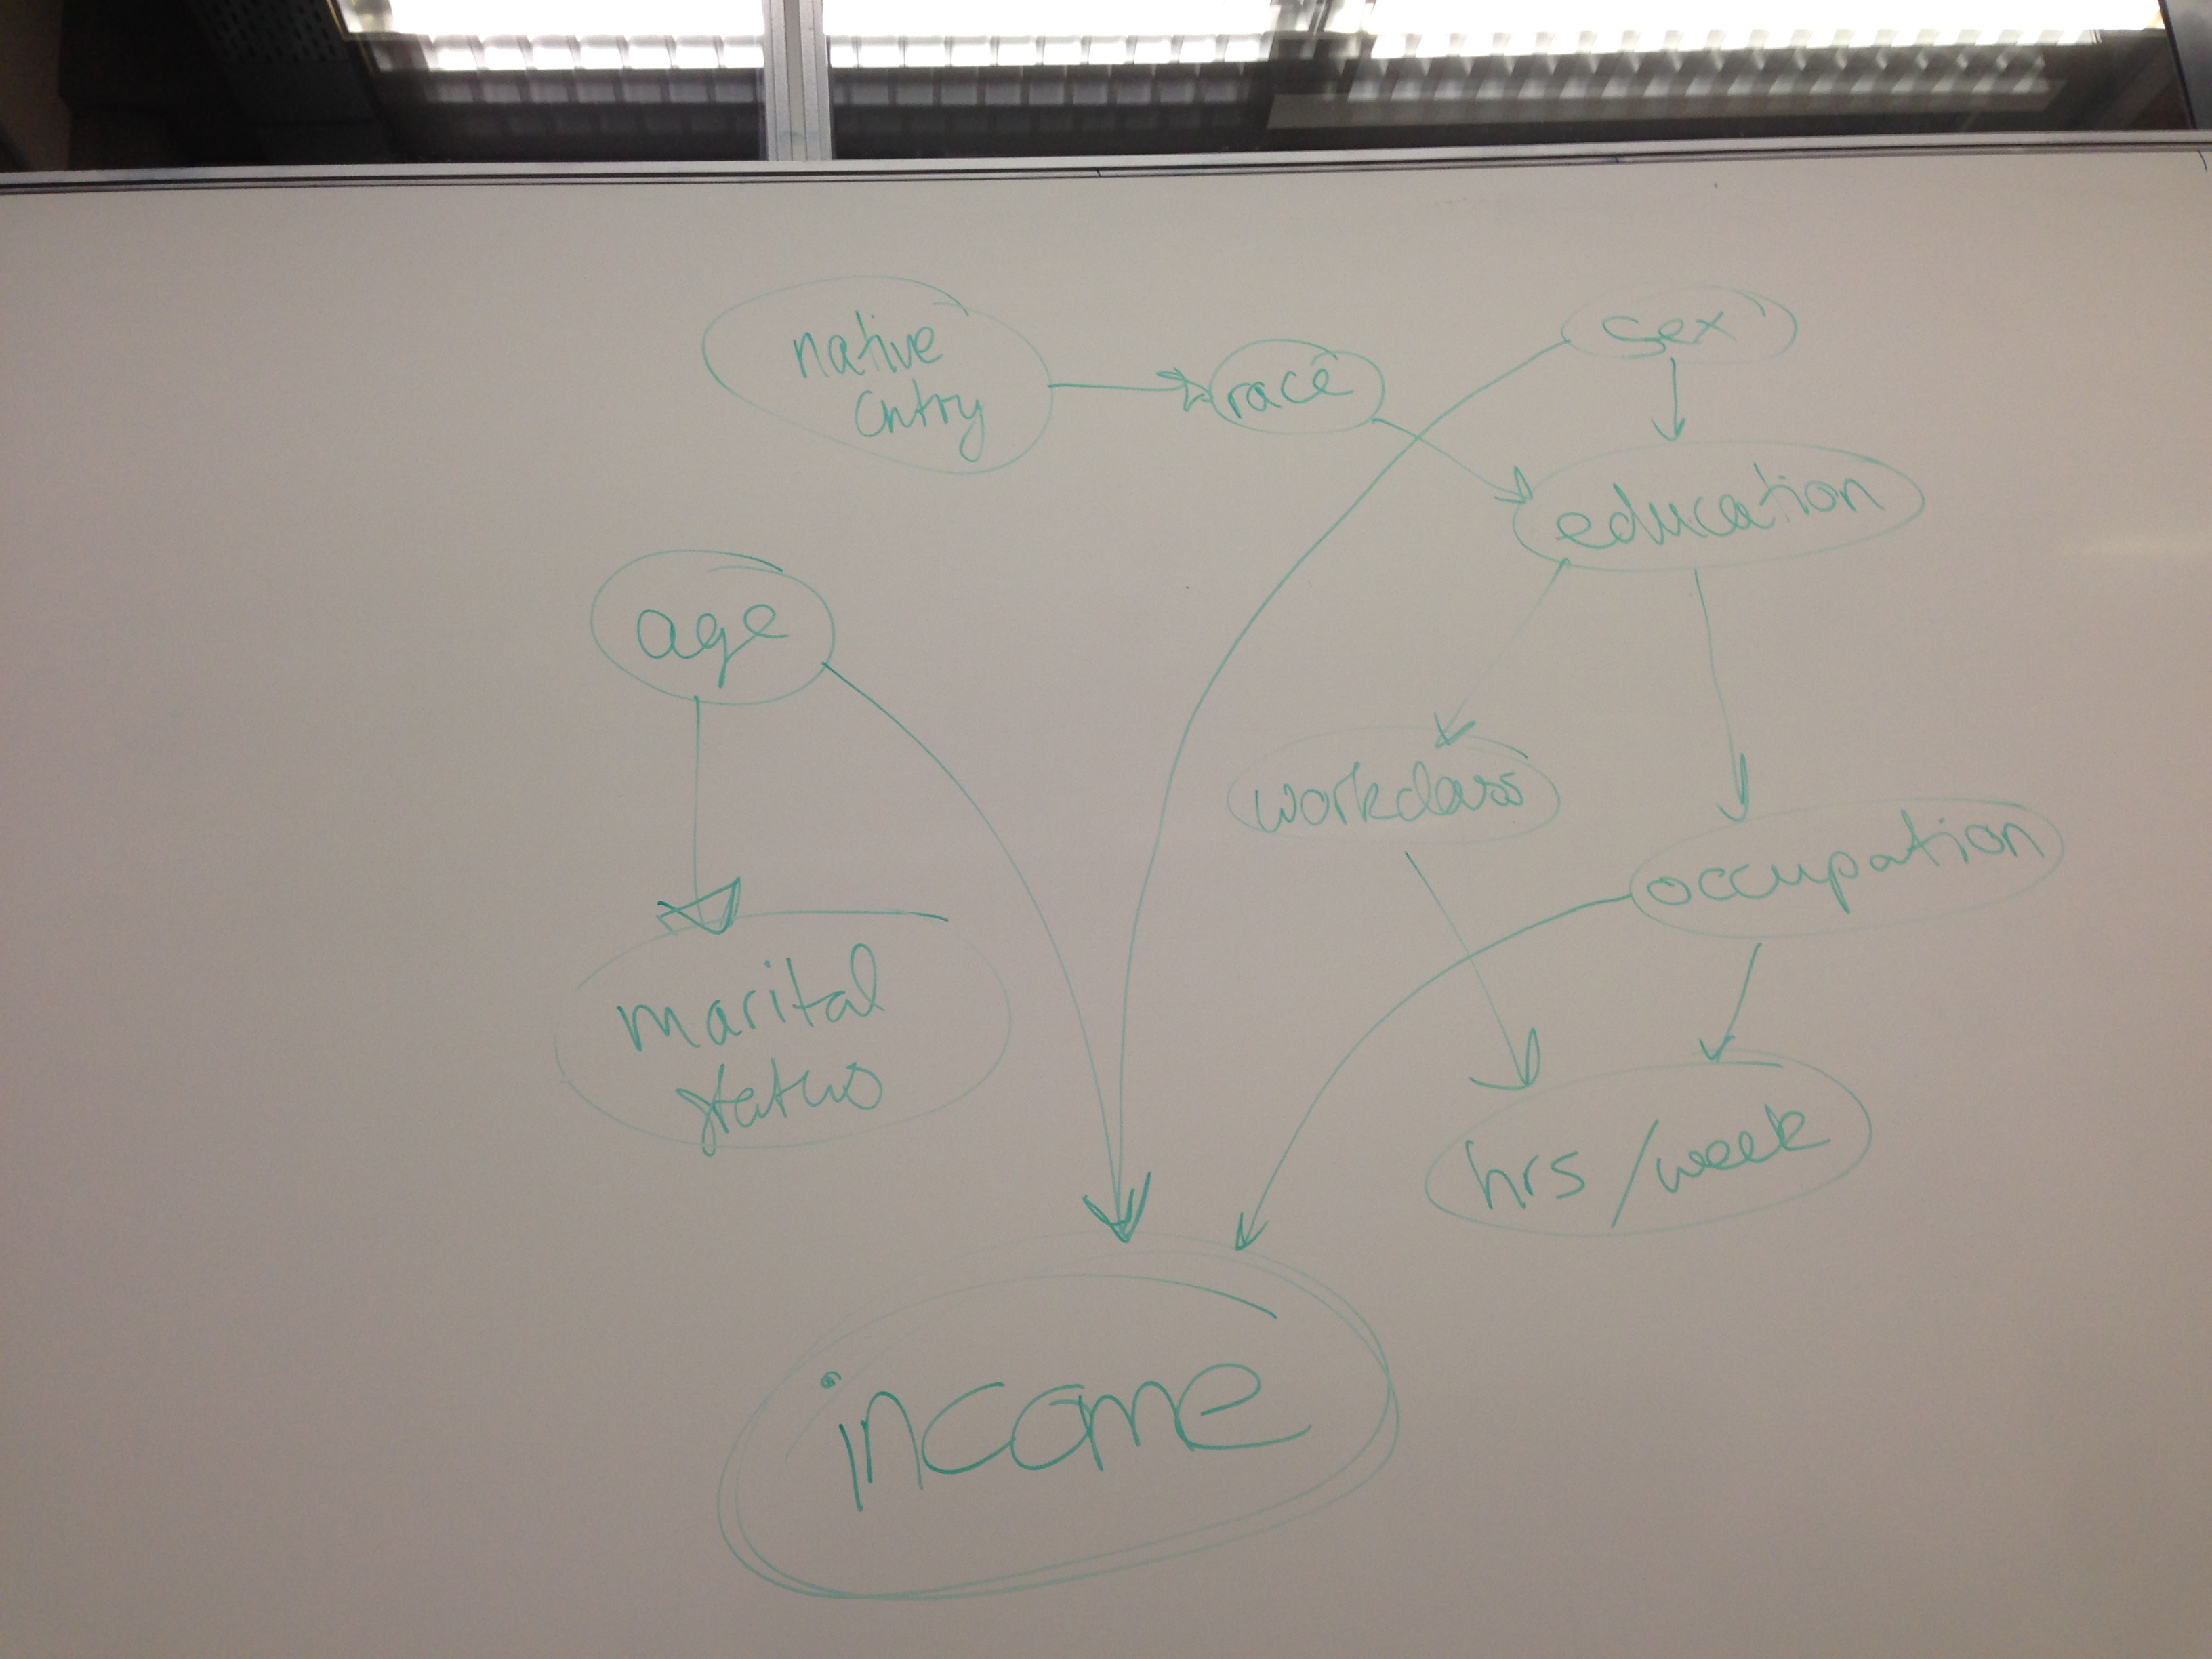 native
Cntry
race
sex
education
age
workclass
occupation
marital
status
hrs/week
income